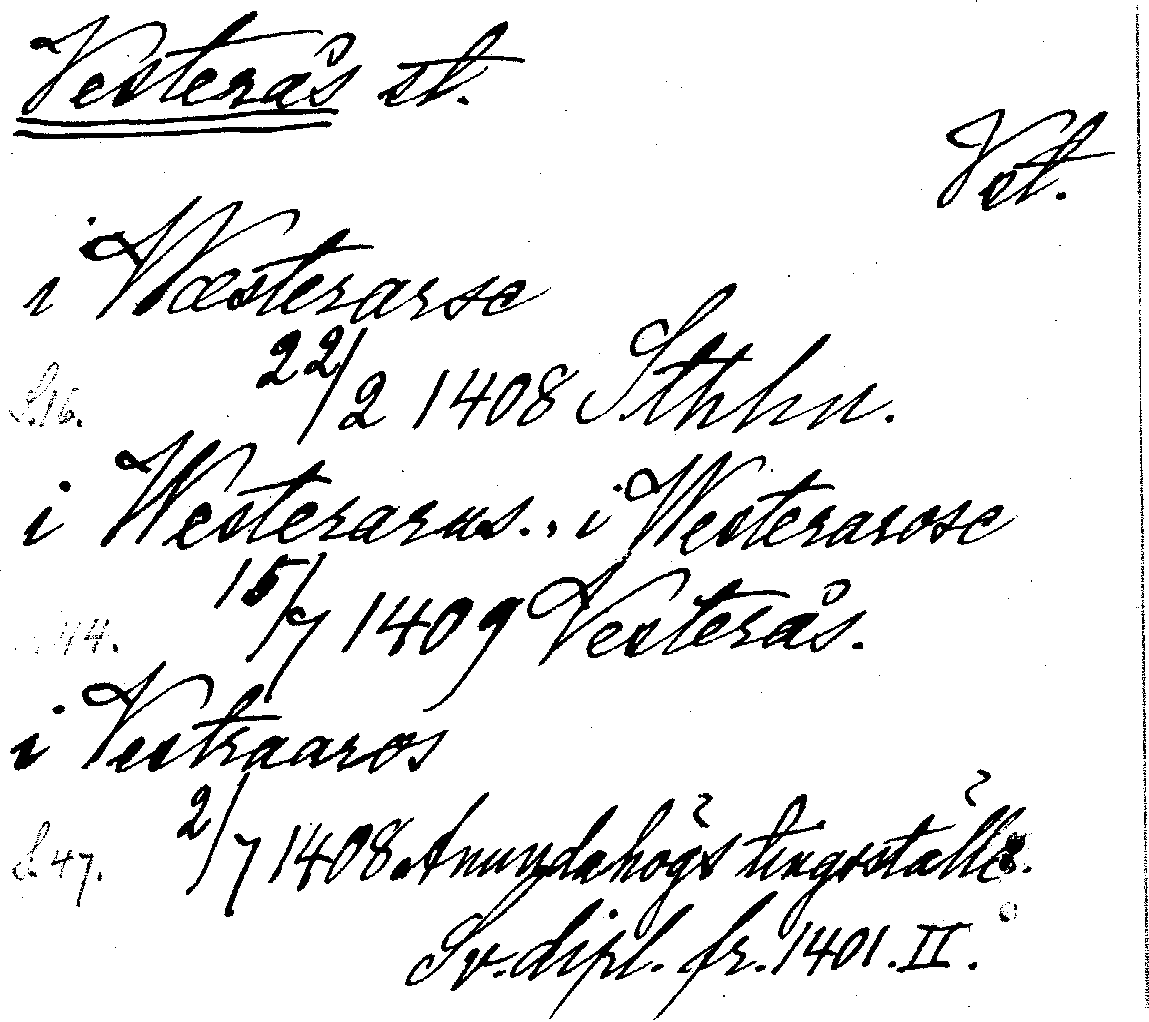 Vesterås st.
Vst.
i Wæsterarse
S. 16. 22/2 1408 Sthlm.
i Westerarus., i Westerarose
44. 15/7 1409 Vesterås.
i Vestraaros
S. 47. 2/7 1408 Anundahögs tingställe.
Sv. dipl. fr. 1401. II.